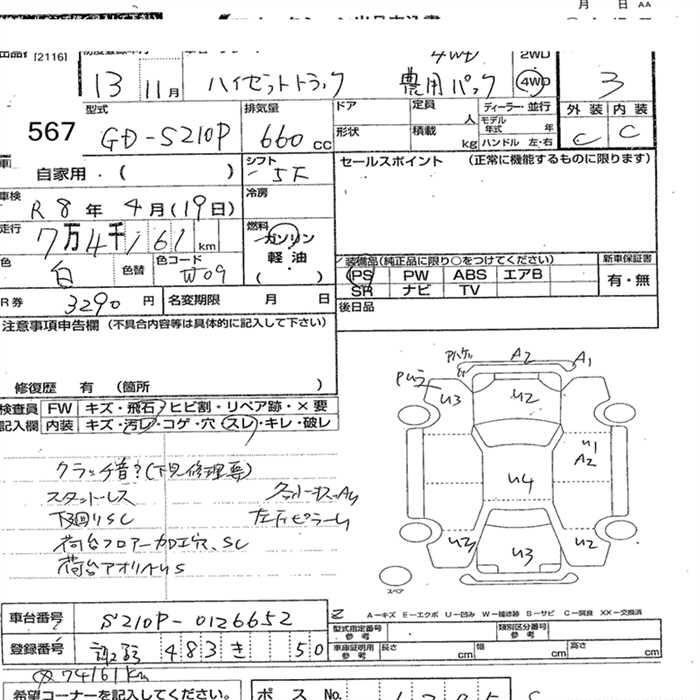 月 日 AA
[2116]
4WD 2WD
13 11月 ハイゼットトラック 農用パック 4WD 3
型式 排気量 ドア 定員 人 ディーラー・並行 外装 内装
567 GD-S210P 660 cc 形状 積載 kg モデル年式 年 ハンドル 左・右 C C
自家用・( ) シフト 5F セールスポイント (正常に機能するものに限ります)
車検 R8年4月(19日) 冷房
走行 7万4千161km 燃料 ガソリン
色 白 色替 色コード W09 軽油 ( )
装備品(純正品に限り○をつけてください) 新車保証書
PS PW ABS エアB 有・無
SR ナビ TV
R券 3290円 名変期限 月 日 後日品
注意事項申告欄 (不具合内容等は具体的に記入して下さい)
修復歴 有 (箇所 )
検査員 FW キズ・飛石・ヒビ割・リペア跡・×要
記入欄 内装 キズ・汚レ・コゲ・穴・スレ・キレ・破レ
A2 A1
U3 U2
U1
A2
U4
U3 U3 U2
スペア
クラッチ音?(下見修理要)
スタットレス
下回りSC
荷台フロアー加工穴、SC
荷台アオリAUS
車台番号 S210P-0126652
登録番号 483 き 50
74161km
A-キズ E-エクボ U-凹み W-補修跡 S-サビ C-腐食 XX-交換済
型式指定番号 参考 類別区分番号 参考
車庫証明用 参考 長さ cm 幅 cm 高さ cm
希望コーナーを記入してください。 ポス No.